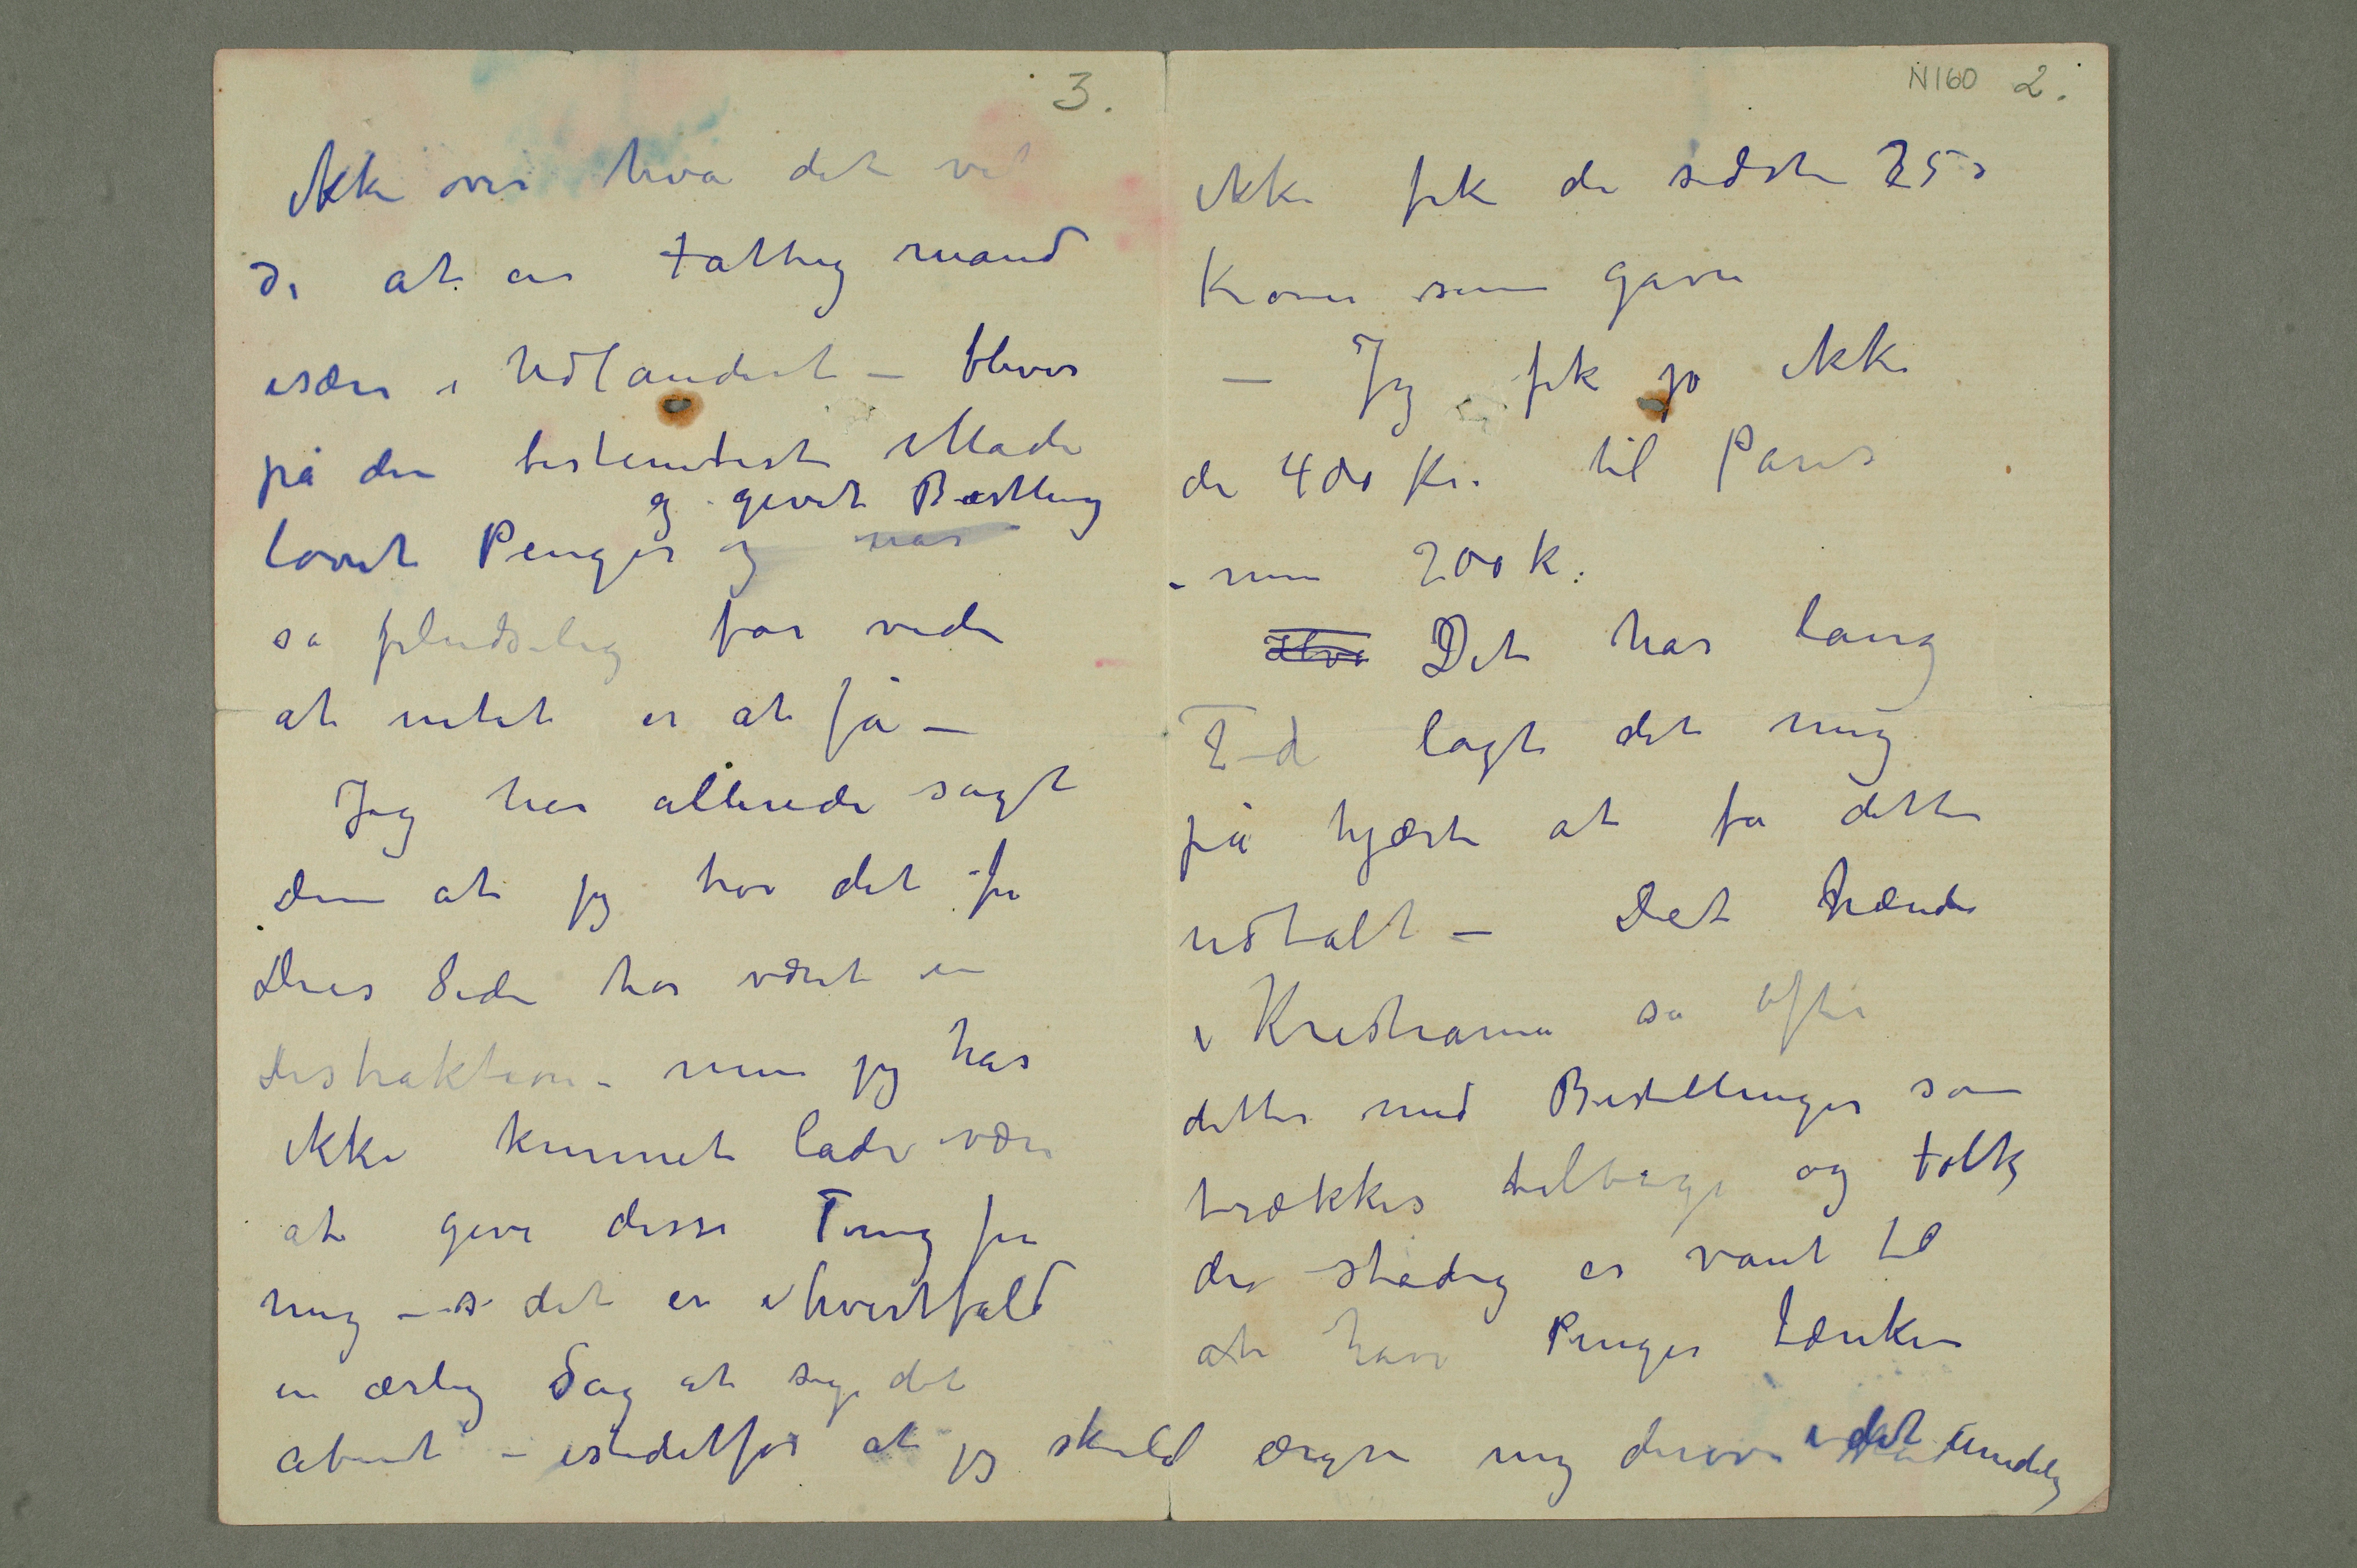 N160 2.
ikke fik de sidste 250
Kroner som gave
– Jeg fik jo ikke
de 400 Kr. til Paris
– men 200 k.
Hvo Det har lang
Tid lagt det mig
på hjærte at få dette
udtalt – Det hænder
i Kristiania så ofte
dette med Bestillinger som
trækkes tilbage og folk
der stadig er vant til
at have Penger tænker
3.
ikke over hva det vil
si at en fattig mand
især i Udlandet – bliver
på den bestemteste Måde
og givet Bestlling
lovet Penger og når
så pludselig får vide
at intet er at få –
Jeg har allerede sagt
Dem at jeg tror det fra
Deres Side har været en
Distraktion – men jeg har
ikke kunnet lade være
at give disse Ting fra
mig – s det er ihvertfald
en ærlig Sag at sige det
åbent – istedetfor at jeg skuld ærgre mig derover i det uendelig